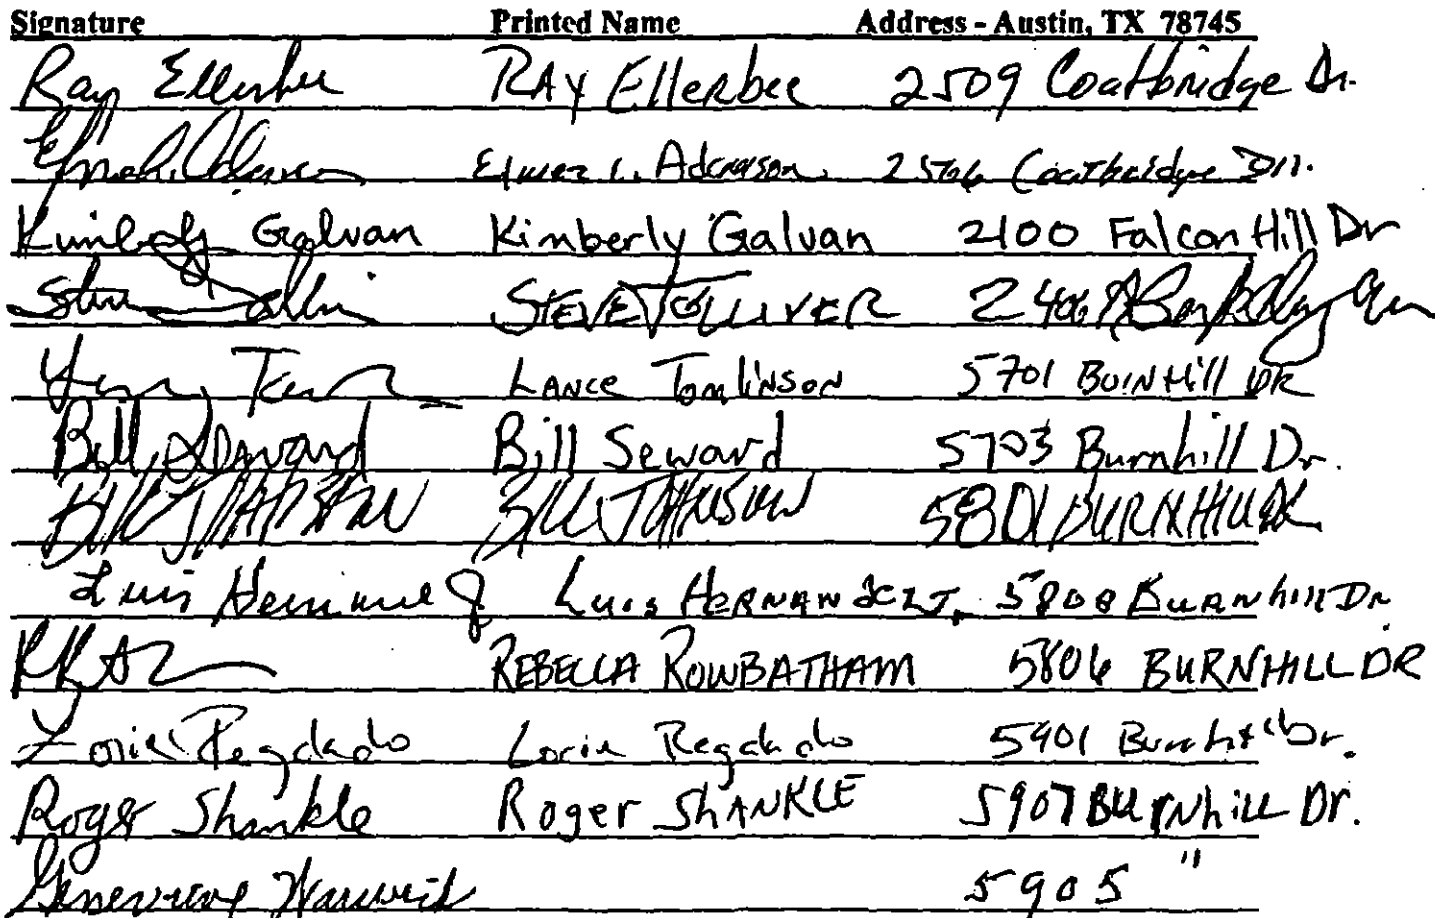 Signature Printed Name Address - Austin, TX 78745
Ray Ellerbee RAY Ellerbee 2509 Coatbridge Dr.
Elmer L. Adamson 2506 Coatbridge Dr.
Kimberly Galvan Kimberly Galvan 2100 Falcon Hill Dr
STEVE TOLLIVER 2406
LANCE TomlinSON 5701 BuRNHill DR
Bill Seward Bill Seward 5703 Burnhill Dr.
BILL JOHNSON BILL JOHNSON 5801 BURNHILL DR
Luis Hernandez J Luis HERNANdEZ J. 5808 BuRNhill Dr
REBECCA ROWBATHAM 5806 BURNHILL DR
Lorie Regalado Lorie Regalado 5901 Burnhill Dr.
Roger Shankle Roger ShANKLE 5907 BURNhill Dr.
Genevieve 5905 "